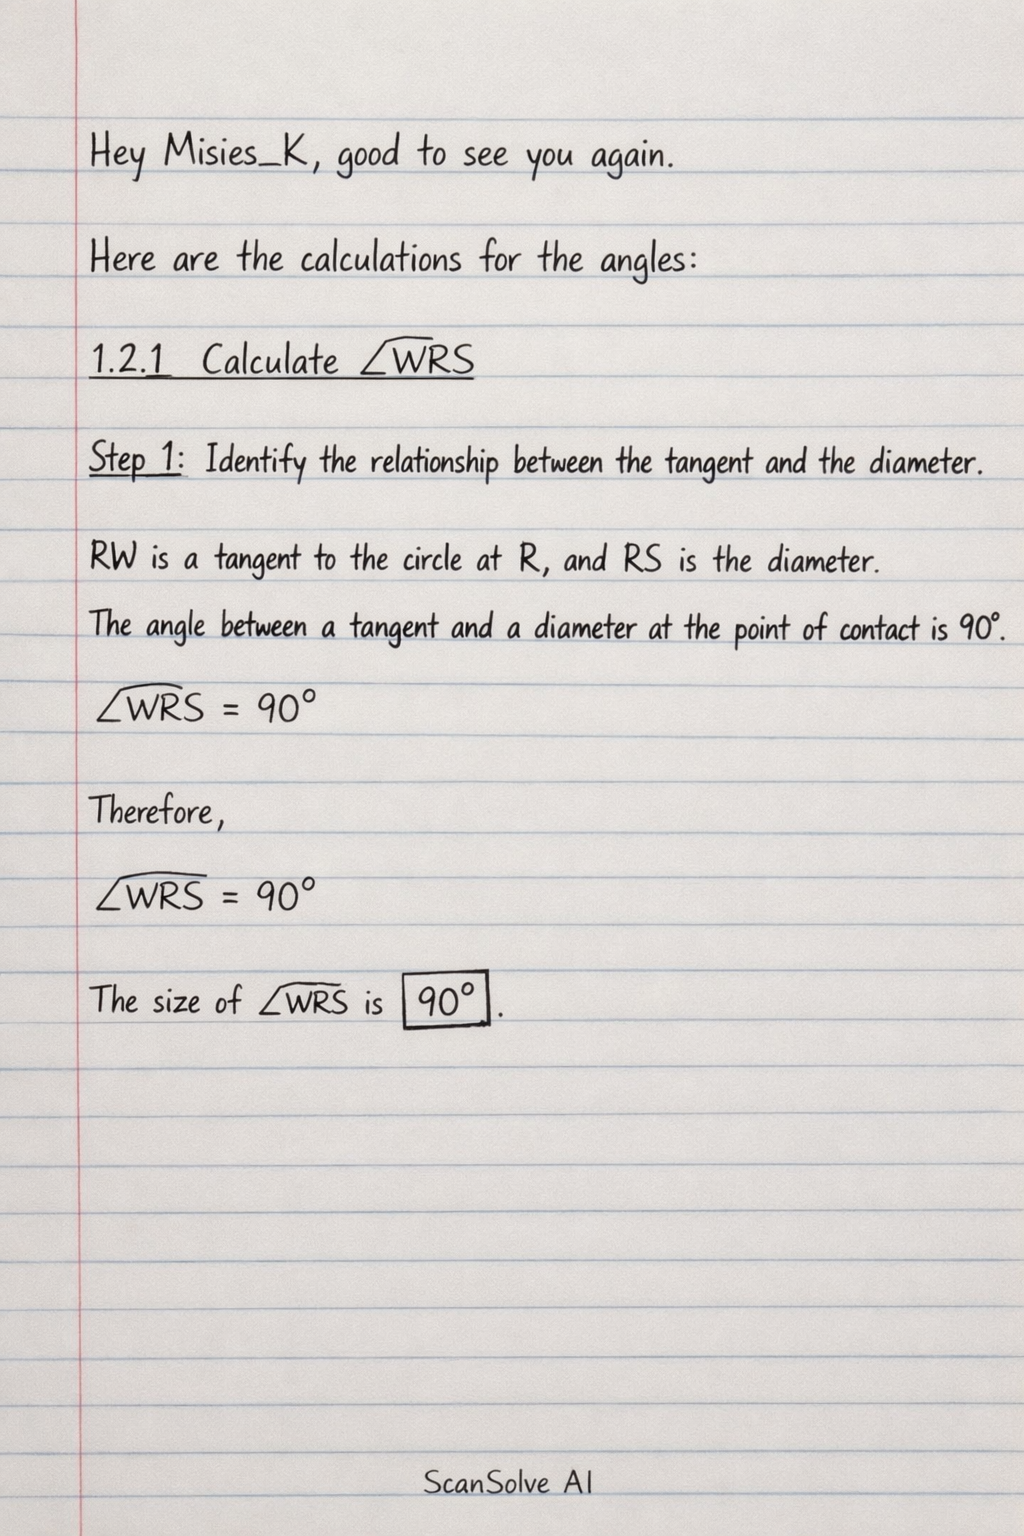 Hey Misies_K, good to see you again.
Here are the calculations for the angles:
1.2.1 Calculate ∠WRS
Step 1: Identify the relationship between the tangent and the diameter.
RW is a tangent to the circle at R, and RS is the diameter.
The angle between a tangent and a diameter at the point of contact is 90°.
∠WRS = 90°
Therefore,
∠WRS = 90°
The size of ∠WRS is 90°.
ScanSolve AI